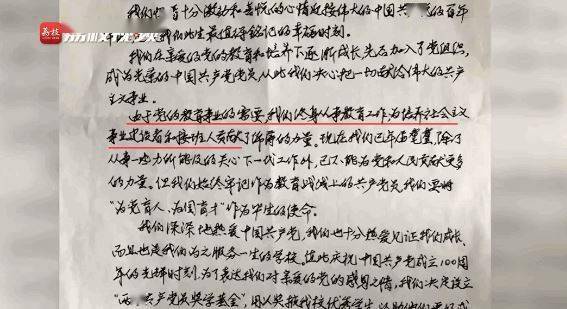 荔枝
我们 十分激动和喜悦的心情迎接伟大的中国共 的百年
我们此生最值得铭记的幸福时刻。
我们在亲爱的党的教育和培养下逐渐成长先后加入了党组织,
成为光荣的中国共产党党员从此我们决心把一切献给伟大的共产
主义事业。
由于党的教育事业的需要,我们终身从事教育工作,为培养社会主义
事业建设者和接班人贡献了绵薄的力量。现在我们已年届耄耋,除了
从事一些力所能及的关心下一代工作外,已不能为党和人民贡献更多
的力量。但我们始终牢记作为教育战线上的共产党员我们要将
“为党育人、为国育才”作为毕生的使命。
我们深深地热爱中国共产党,我们也十分热爱见证我们成长、
而且也是我们为之服务一生的学校。值此庆祝中国共产党成立100周
年的光辉时刻,为了表达我们对亲爱的党的感恩之情,我们决定设立
共产党员奖学基金”,用以奖掖我校优秀学生